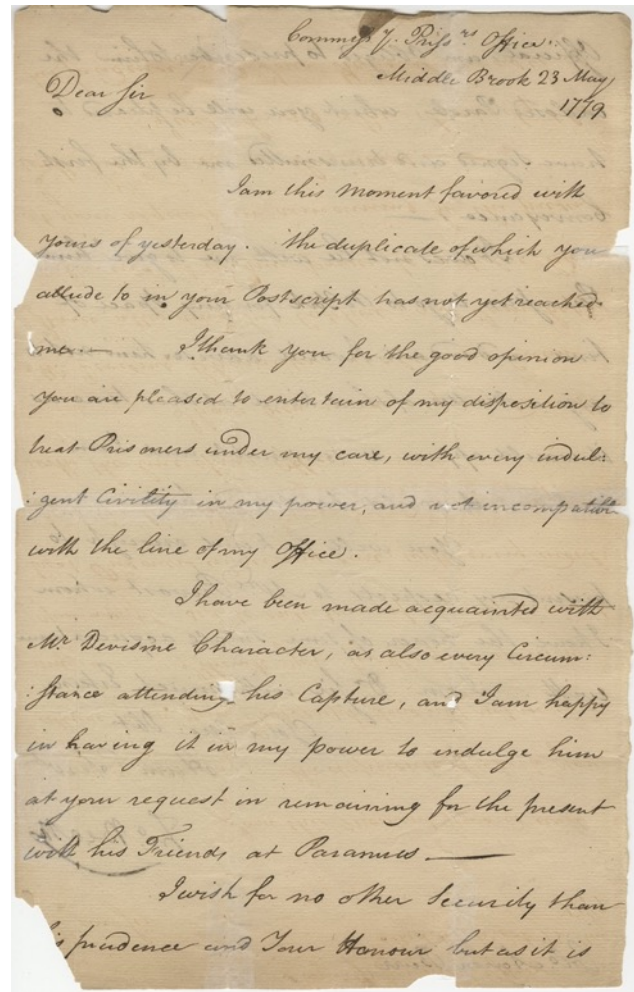 Commissy. Prisrs. Office
Middle Brook 23 May
1779
Dear Sir
I am this Moment favored with
yours of yesterday. the duplicate of which you
allude to in your Postscript has not yet reached
me.— I thank you for the good opinion
you are pleased to entertain of my disposition to
treat Prisoners under my care, with every indul:
:gent Civility in my power, and not incompatible
with the line of my Office.
I have been made acquainted with
Mr. Devisme Character, as also every Circum:
:stance attending his Capture, and I am happy
in having it in my power to indulge him
at your request in remaining for the present
with his Friends at Paramus —
I wish for no other Security than
prudence and Your Honour but as it is